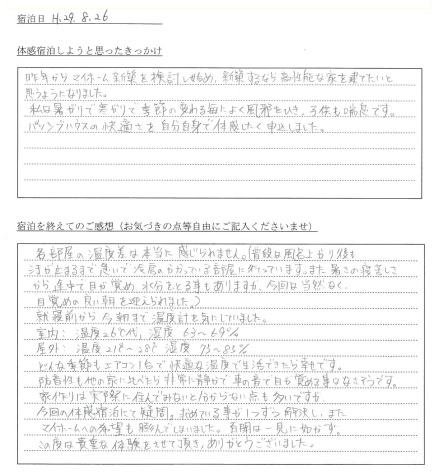 宿泊日 H.29.8.26
体感宿泊しようと思ったきっかけ
昨年からマイホーム新築を検討し始め、新築するなら高性能な家を建てたいと
思うようになりました。
私は暑がりで寒がりで季節の変わる毎によく風邪をひき、子供も喘息です。
パッシブハウスの快適さを自分自身で体感したく申込しました。
宿泊を終えてのご感想（お気づきの点等自由にご記入くださいませ）
各部屋の温度差は本当に感じられません。（普段は風呂上がり後も
汗が止まるまで急いで冷房のかかっている部屋に行っています。また暑さの寝苦しさ
から途中で目が覚め、水分をとる事もありますが、今回は当然なく、
目覚めの良い朝を迎えられました。）
就寝前から今朝まで温度計を気にしていました。
室内： 温度26℃代、湿度 63〜69%
屋外： 温度21°〜28° 湿度 75〜85%
どんな季節もエアコン1台で快適な温度で生活できたら幸せです。
防音性も他の家に比べたら非常に静かで車の音で目が覚める事はなさそうです。
家作りは実際に住んでみないと分からない点も多いですが、
今回の体感宿泊にて疑問、求めている事が1つずつ解決し、また
マイホームへの希望も膨らんでしまいました。百聞は一見に如かず。
この度は貴重な体験をさせて頂き、ありがとうございました。